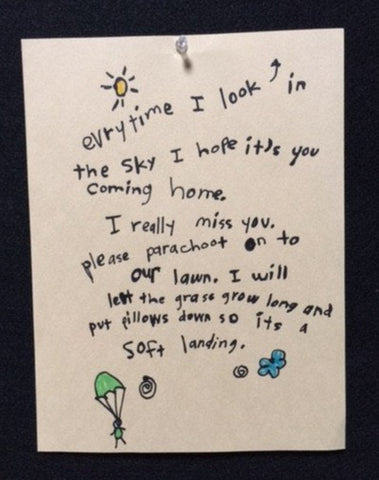 evrytime I look ↑ in
the sky I hope it's you
coming home.
I really miss you.
please parachoot on to
our lawn. I will
lett the grass grow long and
put pillows down so its a
soft landing.